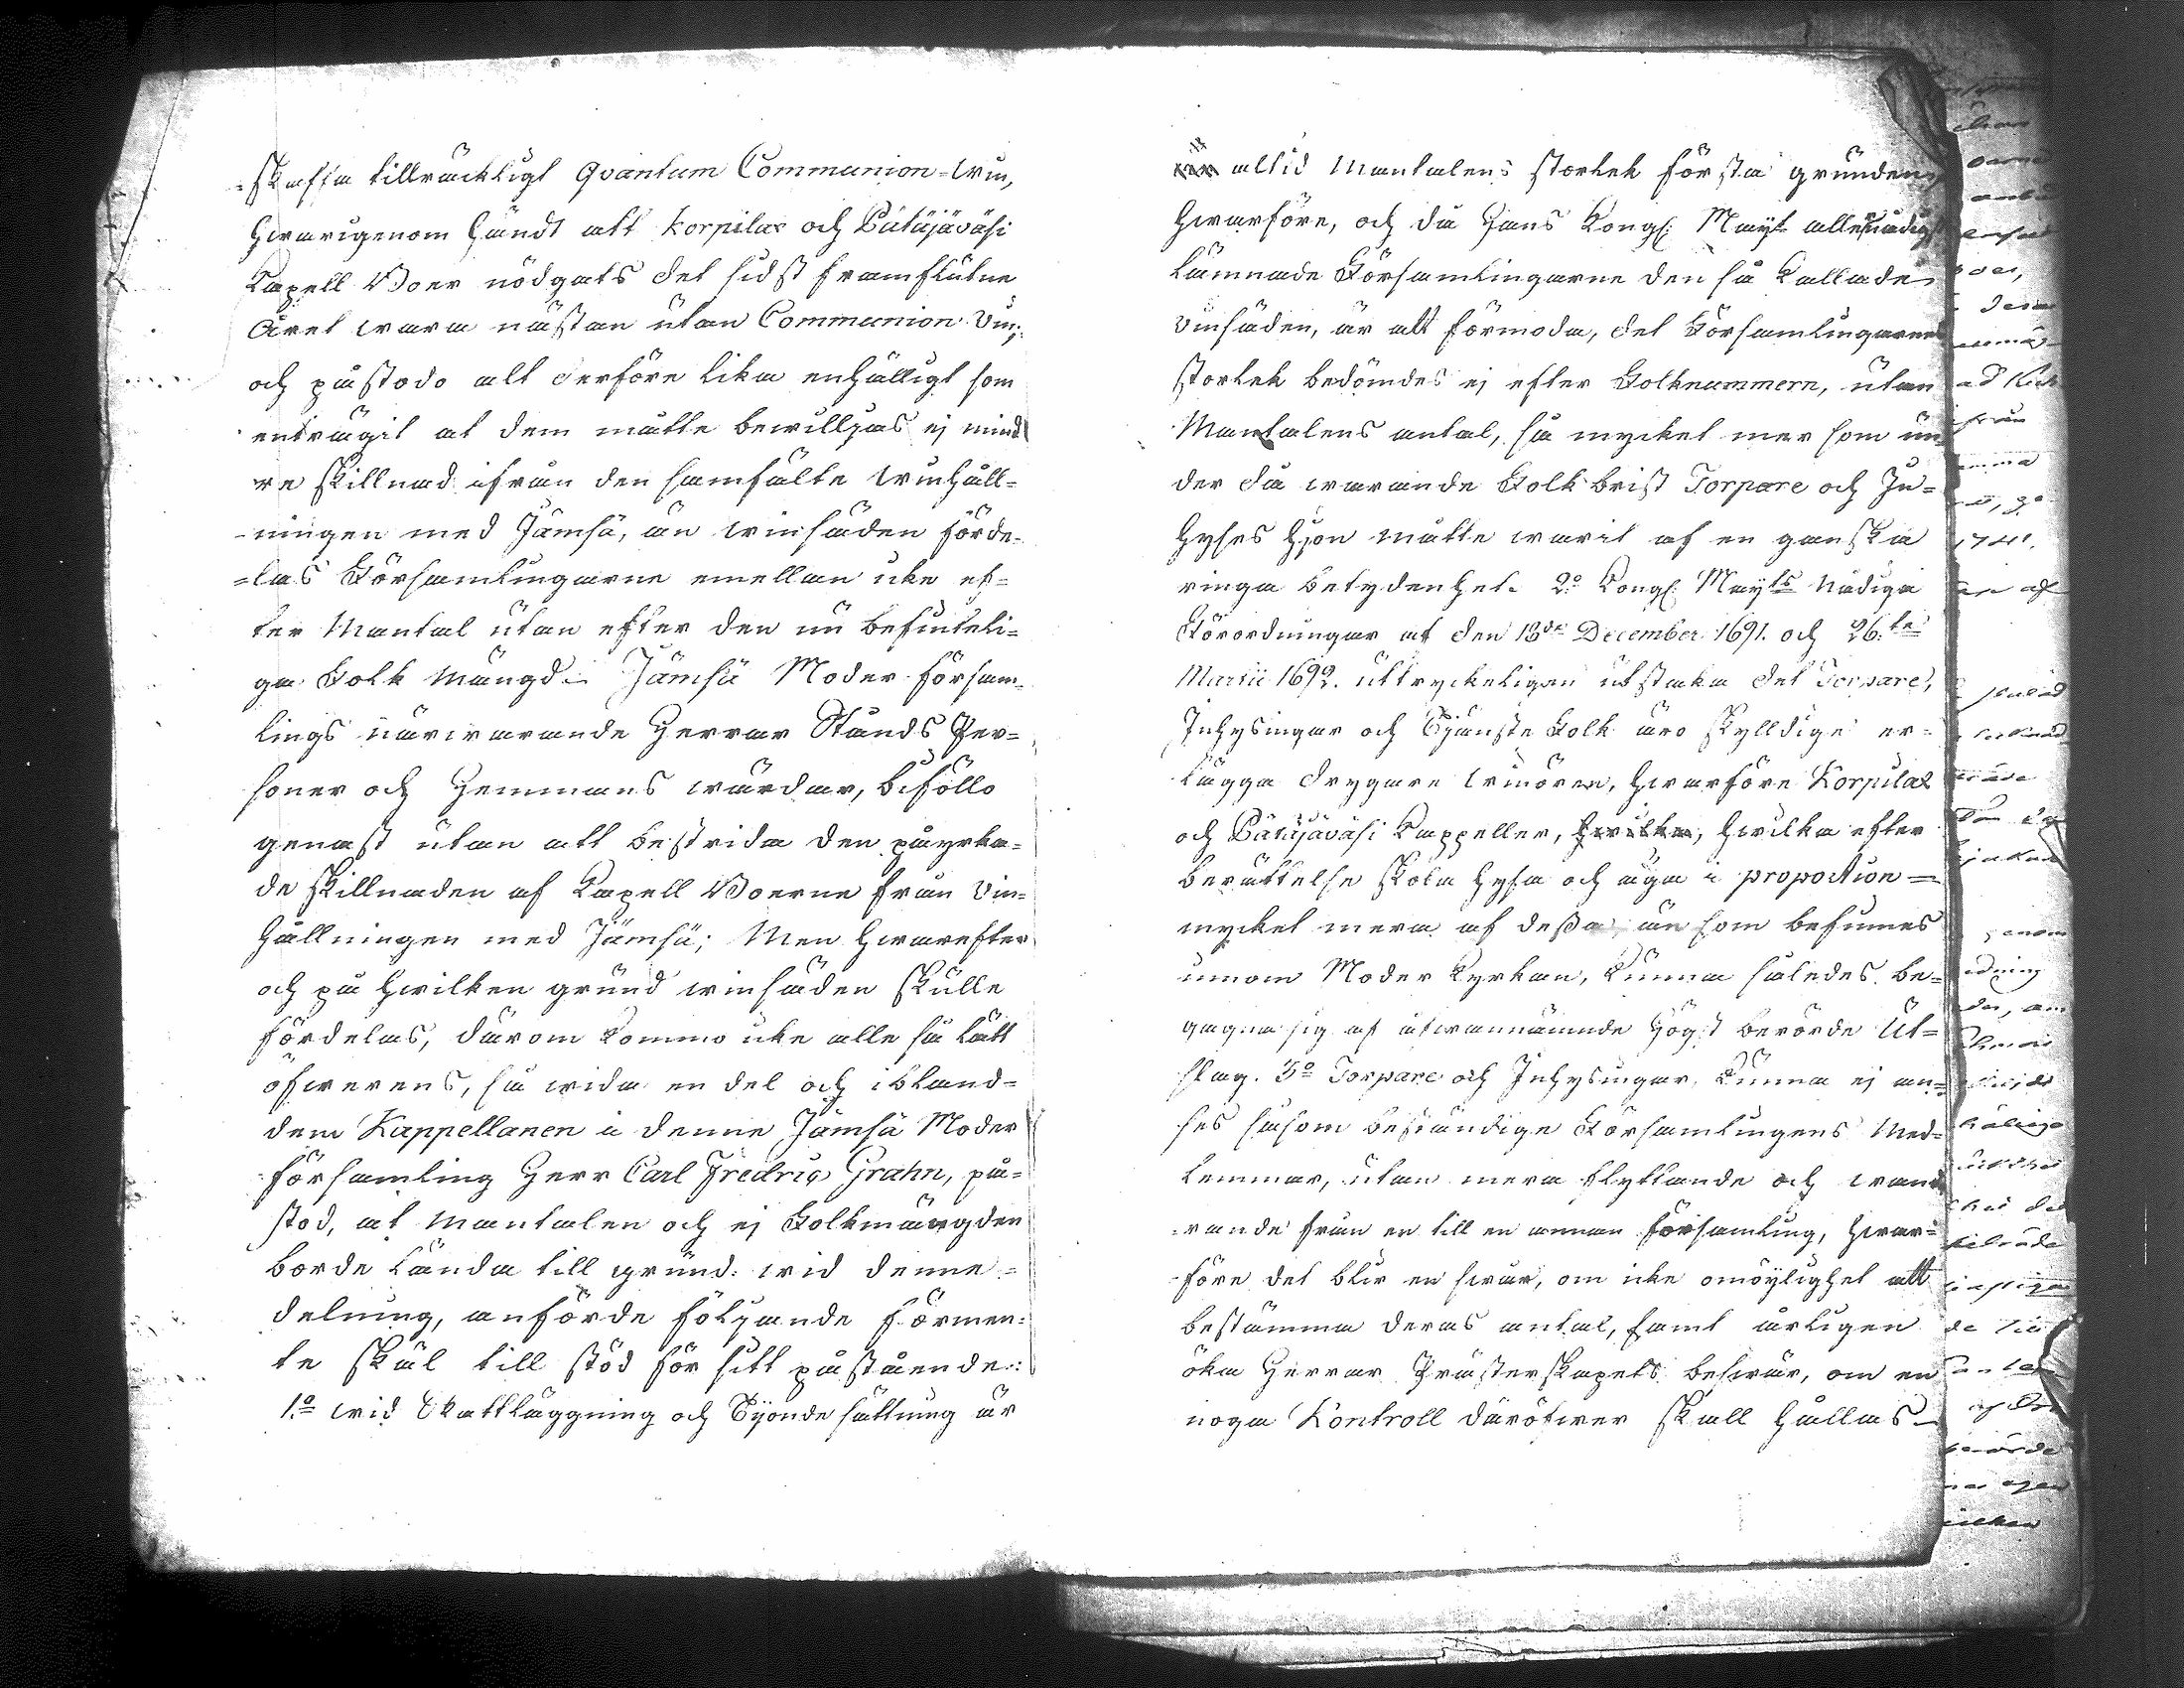 -skaffa tillräckligt Qvantum Communion-win,
hwarigenom händt att Korpilax och Pätäjäväsi
Kapell Boer nödgats det sidst framflutne
Året wara nästan utan Communion Vin;
och påstodo all derföre lika enhälligt som
enträgit at dem måtte bewilljas ej mind
re skillnad ifrån den samfälte winhåll-
-ningen med Jämsä, än winsäden förde-
-las Församlingarne emellan icke ef-
ter Mantal utan efter den nu befinteli-
ga Folk mängd. Jämsä Moder Försam-
lings närwarande Herrar Stånds Per-
soner och Hemmans wärdar, biföllo
genast utan att bestrida den påyrka-
de skillnaden af Kapell Boerne från Vin-
hållningen med Jämsä; Men hwarefter
och på hwilken grund winsäden skulle
fördelas, därom kommo icke alle så lätt
öfwerens, så wida en del och ibland-
dem Kappellanen i denne Jämsä Moder
församling Herr Carl Fredric Grahn, på-
stod, at Mantalen och ej Folkmängden
borde lända till grund wid denne
delning, anförde följande förmen-
te skäl till stöd för sitt påstående:
1.o wid Skattläggning och Tijonde sättning är
är altid Mantalens storlek första grunden,
hwarföre, och då Hans Kongl. Mayt allernådigst
lämnade Församlingarne den så kallade
vinsäden, är att förmoda, det Församlingarnes
storlek bedömdes ej efter Folknummern, utan
Mantalens antal, så myckel mer som un
der då warande Folkbrist Torpare och In-
hyses hjon måtte warit af en ganska
ringa betydenhet. 2o Kongl. Mayts Nådiga
Förordningar af den 18de December 1691. och 26.te
Martii 1692. uttryckeligen utstaka det Torpare,
Inhysingar och Tjänste Folk äro skylldige er-
lägga drygare winören, hwarföre Korpilax
och Pätäjäväsi Kappeller, hwilka, hwilka efter
berättelse skola hysa och äga i proportion
myckel mera af dessa, än som befinnes
innom Moder Kyrkan, kunna således be-
gagna sig af ofwannämnde högst berörde Ut-
slag. 3o Torpare och Inhysingar kunna ej an-
ses såsom beständige Församlingens Med-
lemmar, utan mera flyttande och wand
-rande från en till en annan församling, hwar-
-före det blir en swår, om icke omöylighet att
bestämma deras antal, samt årligen
öka Herrar Prästerskapets beswär, om en
noga Kontroll däröfwer skall hållas